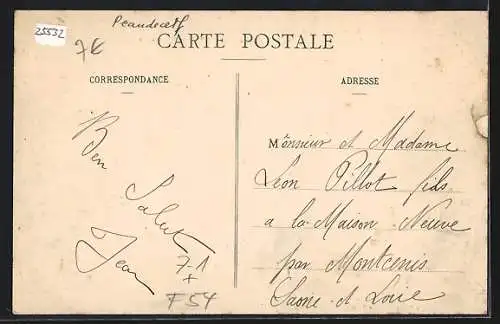 25532
7€
CARTE POSTALE
CORRESPONDANCE
ADRESSE
Bon
Salut
Jean
7-1
F54
Monsieur et Madame
Léon Pillot fils
a la Maison Neuve
par Montcenis
Saone et Loire